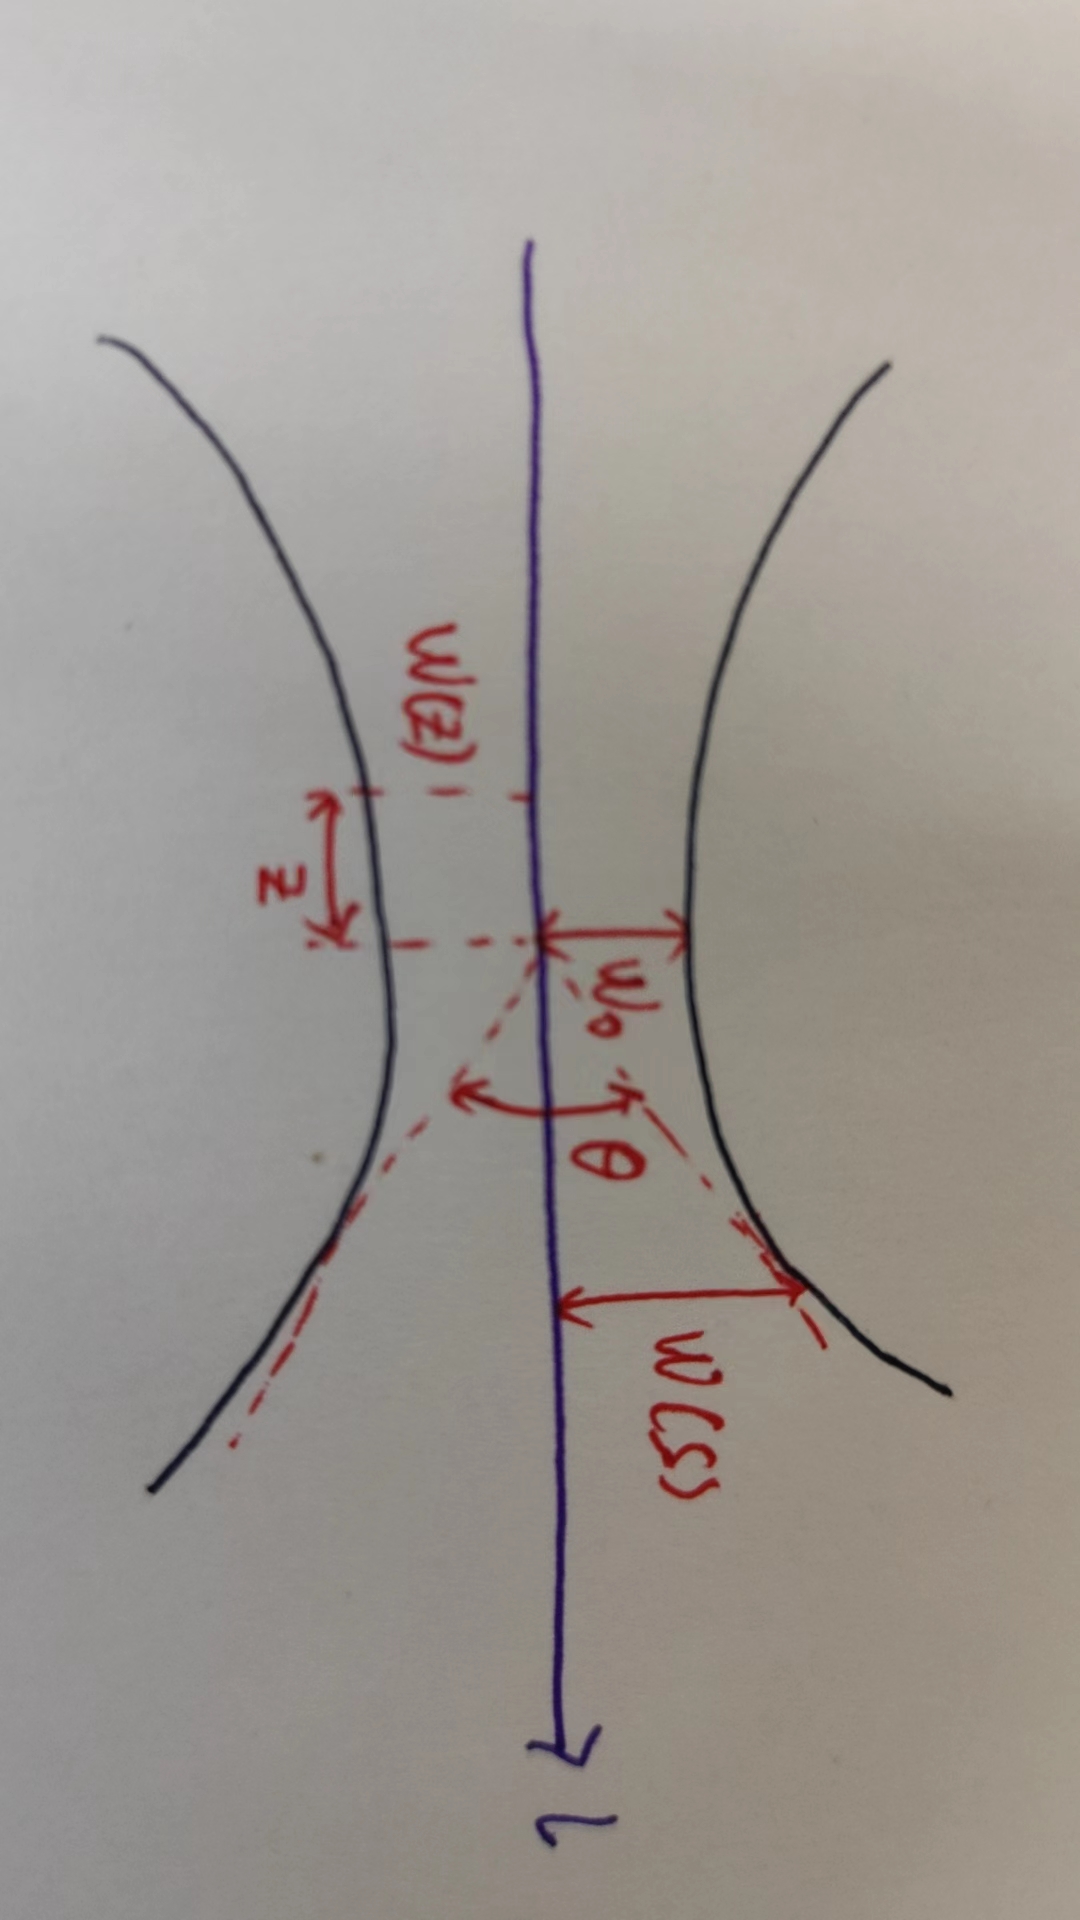 W(S)
W₀
θ
l
W(Z)
Z